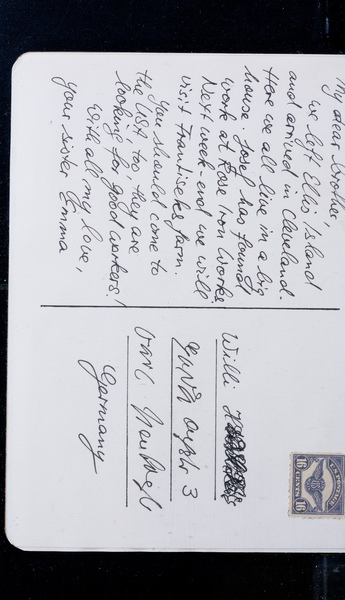 My dear brother,
we left Ellis Island
and arrived in Cleveland.
Here we all live in a big
house. Josef has found
work at Ross Iron Works.
Next week-end we will
visit Frantiseks farm.
You should come to
the USA, too, they are
looking for good workers!
With all my love,
your sister Emma
Willi
3
Germany
AIR POSTAGE
16 CENTS 16